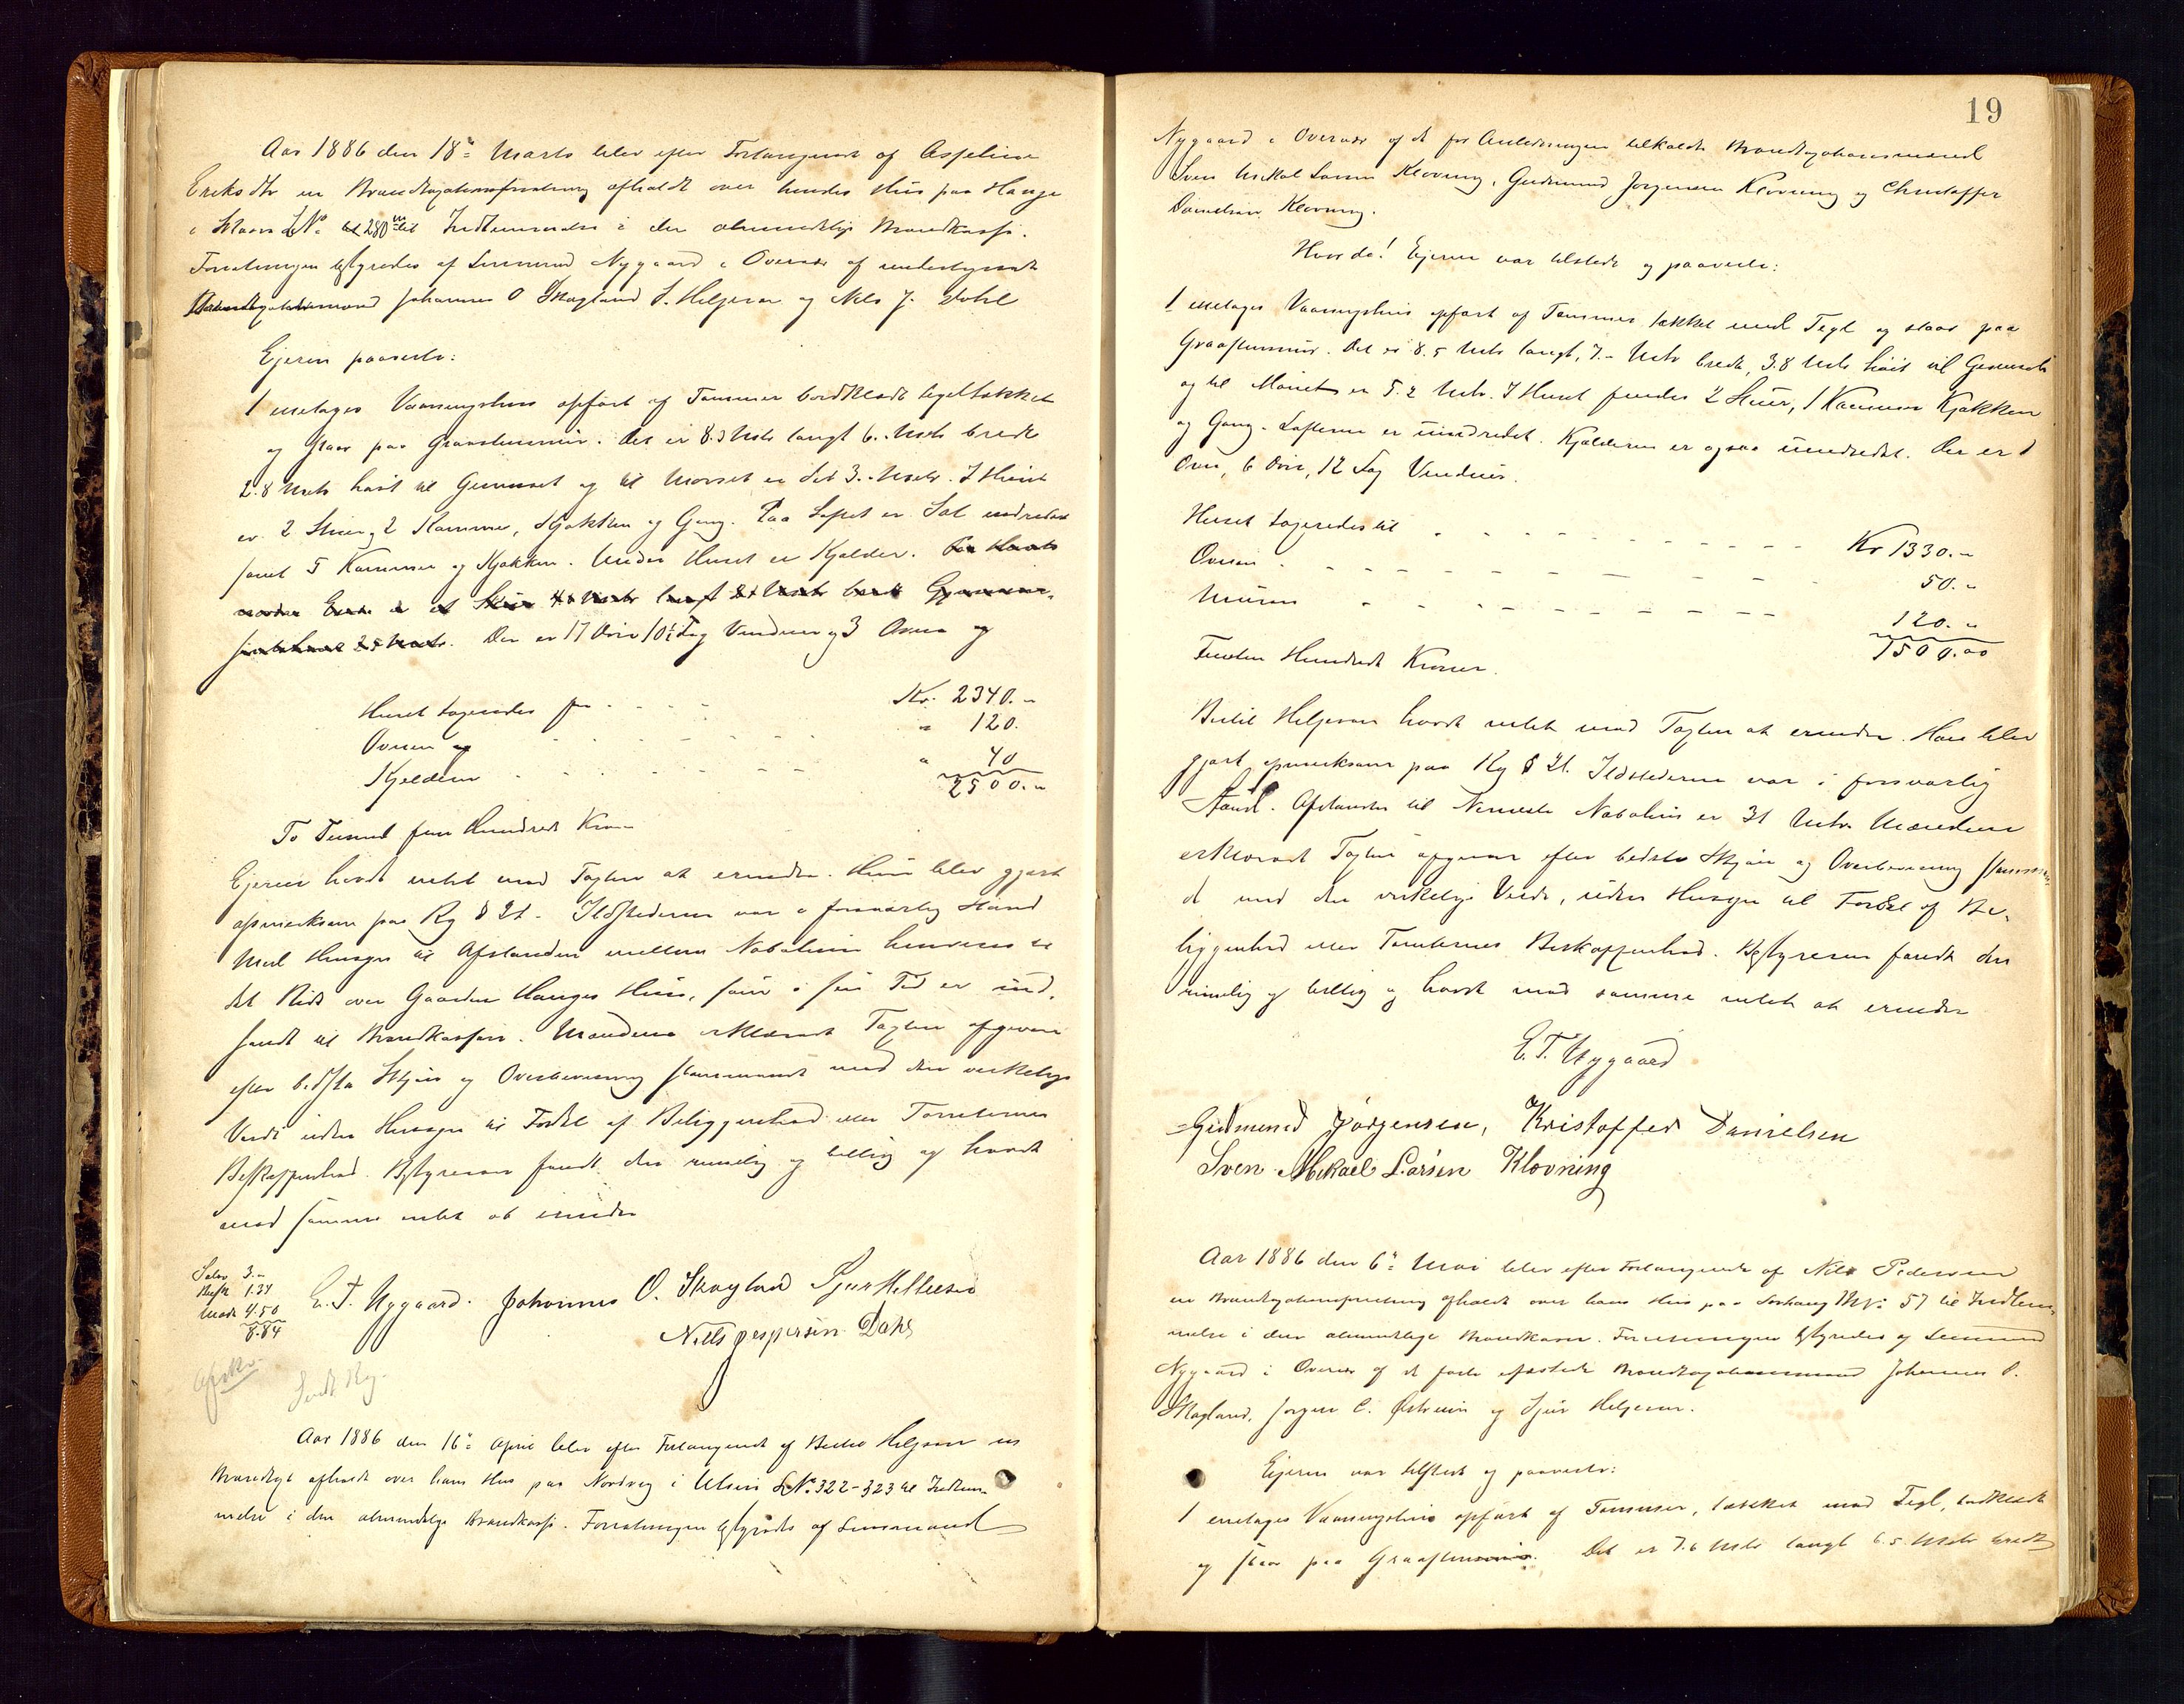 Aar 1886 den 18de Marts blev efter Forlangende af Asseline
Eriksdtr en Brandtaxationsforretning afholdt over hendes Hus paa Hauge
i Skaare LNo 280 til Indlemmelse i den almindelige Brandkasse.
Forretningen bestyredes af Lensmand Nygaard i Overvær af undertegnede
Brandtaxationsmænd Johannes O Skogland S. Helgesen og Nils J. Dahl
Ejeren paaviste:
1 enetages Vaaningshus opført af Tømmer bordklædt tegltækket
og staar paa Graastensmur. Det er 8.3 Metr langt 6. Metr bredt
2.8 Metr høit til Gesimset og til Mønet er det 3. Metr. I Huset
er 2 Stuer, 2 Kammer, Kjøkken og Gang. Paa Loftet er Sal indredet
samt 5 Kammer og Kjøkken. Under Huset er Kjelder.
Der er 17 Døre 10½ Fag Vinduer og 3 Ovne og
Huset taxeredes for Kr. 2340.-
Ovnen og " 120.
Kjelderen " 40
2500.-
To Tusind fem Hundrede Kroner
Ejeren havde intet mod Taxten at erindre. Hun blev gjort
opmerksom paa Kg § 21. Ildstederne var i forsvarlig Stand
Med Hensyn til Afstanden mellem Nabohuse henvises til
det Rids over Gaarden Hauges Huse, som i sin Tid er ind-
sendt til Brandkassen. Mændene erklærede Taxten afgiven
efter bedste Skjøn og Overbevisning stemmende med den virkelige
Værdi uden Hensyn til Fordel af Beliggenhed eller Tomternes
Beskaffenhed. Bestyreren fandt den rimelig og billig og havde
mod samme intet at erindre
3.-
1.34
4.50
8.84
E. T. Nygaard. Johannes O. Skogland Sjur Helliesen
Nills Jespersen Dahl
Afskr.
Sendt Kg.
Aar 1886 den 16de April blev efter Forlangende af Bertel Helgesen en
Brandtaxt afholdt over hans Hus paa Nordveg i Utsire LNo. 322-323 til Indlem-
melse i den almindelige Brandkasse. Forretningen bestyredes af Lensmand
19
Nygaard i Overvær af de for Anledningen tilkaldte Brandtaxationsmænd
Sven Mikal Larsen Klovning, Gudmund Jørgensen Klovning og Christoffer
Danielsen Klovning.
Hvorda! Ejeren var tilstede og paaviste:
1 enetages Vaaningshus opført af Tømmer, tækket med Tegl og staar paa
Graastensmur. Det er 8.5 Metr langt, 7.- Metr bredt, 3.8 Metr høit til Gesimset
og til Mønet er 5.2 Metr. I Huset findes 2 Stuer, 1 Kammer Kjøkken
og Gang. Lofterne er uindredet. Kjelderen er ogsaa uindredet. Der er 1
Ovn, 6 Døre, 12 Fag Vinduer.
Huset taxeredes til Kr 1330.-
Ovnen 50.-
Muren 120.-
1500.00
Femten Hundrede Kroner.
Bertel Helgesen havde intet mod Taxten at erindre. Han blev
gjort opmerksom paa Kg § 21. Ildstederne var i forsvarlig
Stand. Afstanden til Nærmeste Nabohus er 31 Metr. Mændene
erklærede Taxten afgiven efter bedste Skjøn og Overbevisning stemmen-
de med den virkelige Værdi, uden Hensyn til Fordel af Be-
liggenhed eller Tomternes Beskaffenhed. Bestyreren fandt den
rimelig og billig og havde mod samme intet at erindre
E. T. Nygaard
Gudmund Jørgensen, Kristoffer Danielsen
Sven Mikael Larsen Klovning
Aar 1886 den 6te Mai blev efter Forlangende af Nils Pedersen
en Brandtaxationsforretning afholdt over hans Hus paa Sørhaug MNo 57 til Indlem-
melse i den almindelige Brandkasse. Forretningen bestyredes af Lensmand
Nygaard i Overvær af de faste edfæstede Brandtaxationsmænd Johannes O.
Skogland, Jørgen C. Østrem og Sjur Helgesen.
Ejeren var tilstede og paaviste:
1 enetages Vaaningshus opført af Tømmer, tækket med Tegl, bordklædt
og staar paa Graastensmur. Det er 7.6 Metr langt 6.5 Metr bredt